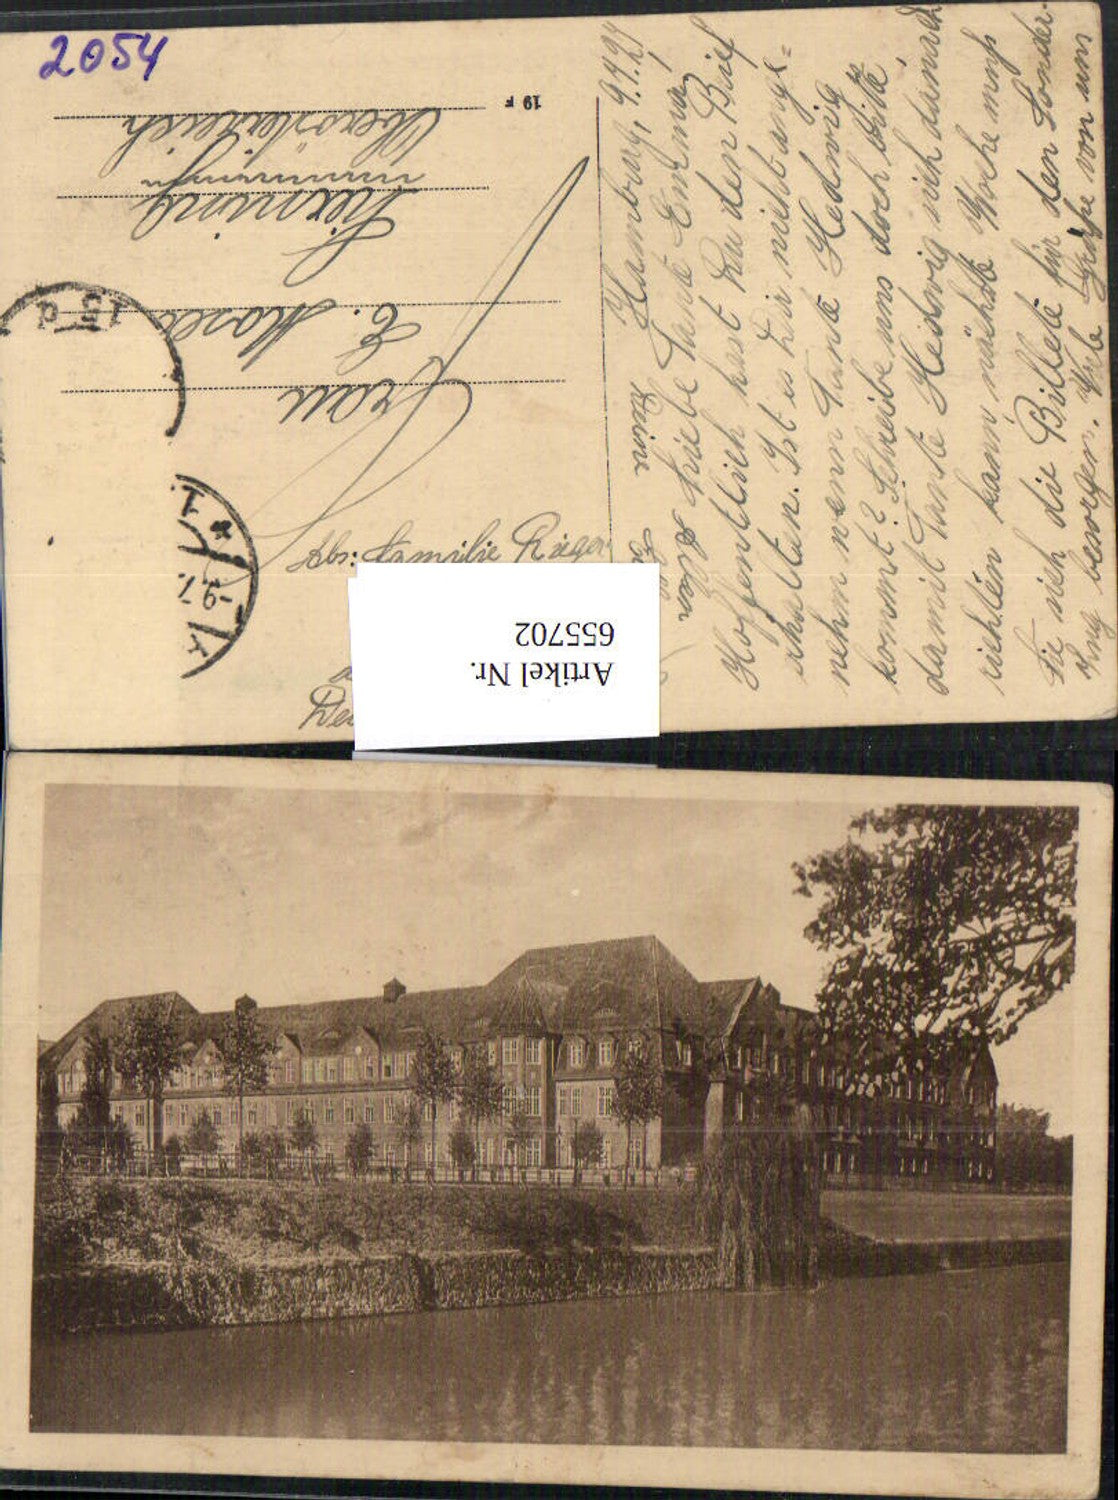 2054
19 F
Frau
E. Moser
Sierning
Oberösterreich
15 d
-9.7.
Abs: Familie Rieger
Artikel Nr.
655702
Hamburg, 9.7.
Liebe Tante Emma,
Hoffentlich hast Du den Brief
erhalten. Ist es Dir nicht ange-
nehm wenn Tante Hedwig
kommt? Schreibe uns doch bitte,
damit Tante Hedwig sich danach
richten kann, nächste Woche muß
sie sich die Billete für den Sonder-
zug besorgen. Viele Grüße von uns
Deine